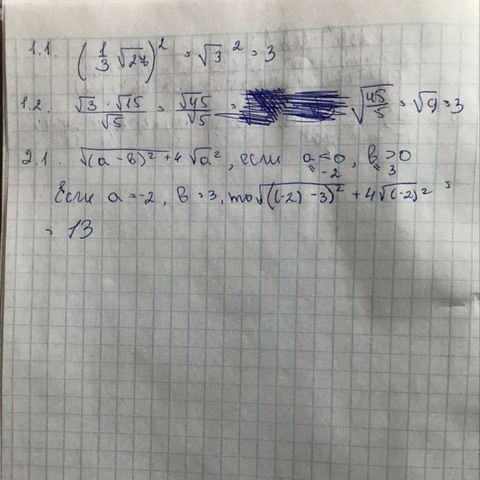 1.1. (1/3 √27)² = √3² = 3
1.2. √3 · √15 / √5 = √45 / √5 = √(45/5) = √9 = 3
2.1. √(a - в)² + 4 √a², если a < 0, в > 0
= -2 = 3
Если a = -2, в = 3, то √((-2) - 3)² + 4√(-2)² =
= 13